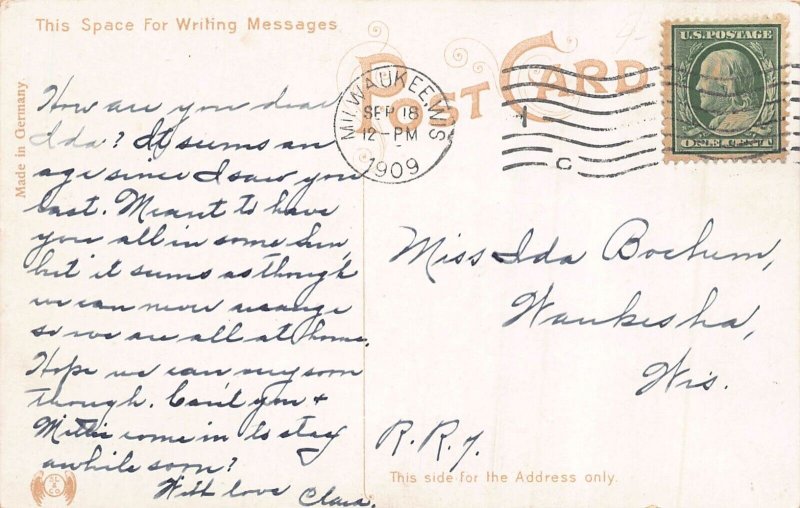 This Space For Writing Messages
POST CARD
Made in Germany
MILWAUKEE, WIS
SEP 18
12-PM
1909
1
C
U.S. POSTAGE
ONE CENT
How are you dear
Ida? It seems an
age since I saw you
last. Meant to have
you all in some Sun,
but it seems as though
we can never arrange
so we are all at home.
Hope we can very soon
though. Can't you +
come in to stay
awhile soon?
With love Clara.
Miss Ida Bochum,
Waukesha,
Wis.
R. R. 7.
This side for the Address only.